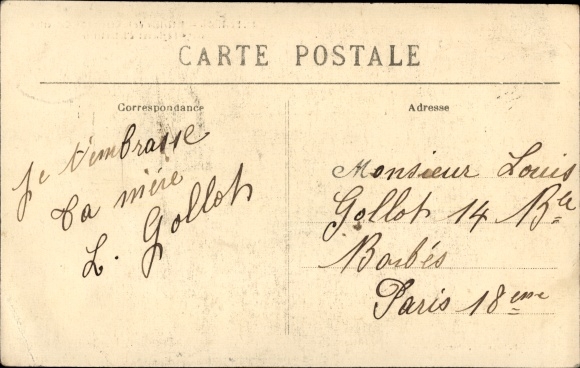 CARTE POSTALE
Correspondance
Adresse
Je t'embrasse
ta mère
L. Gollot
Monsieur Louis
Gollot 14 Bd
Barbés
Paris 18eme